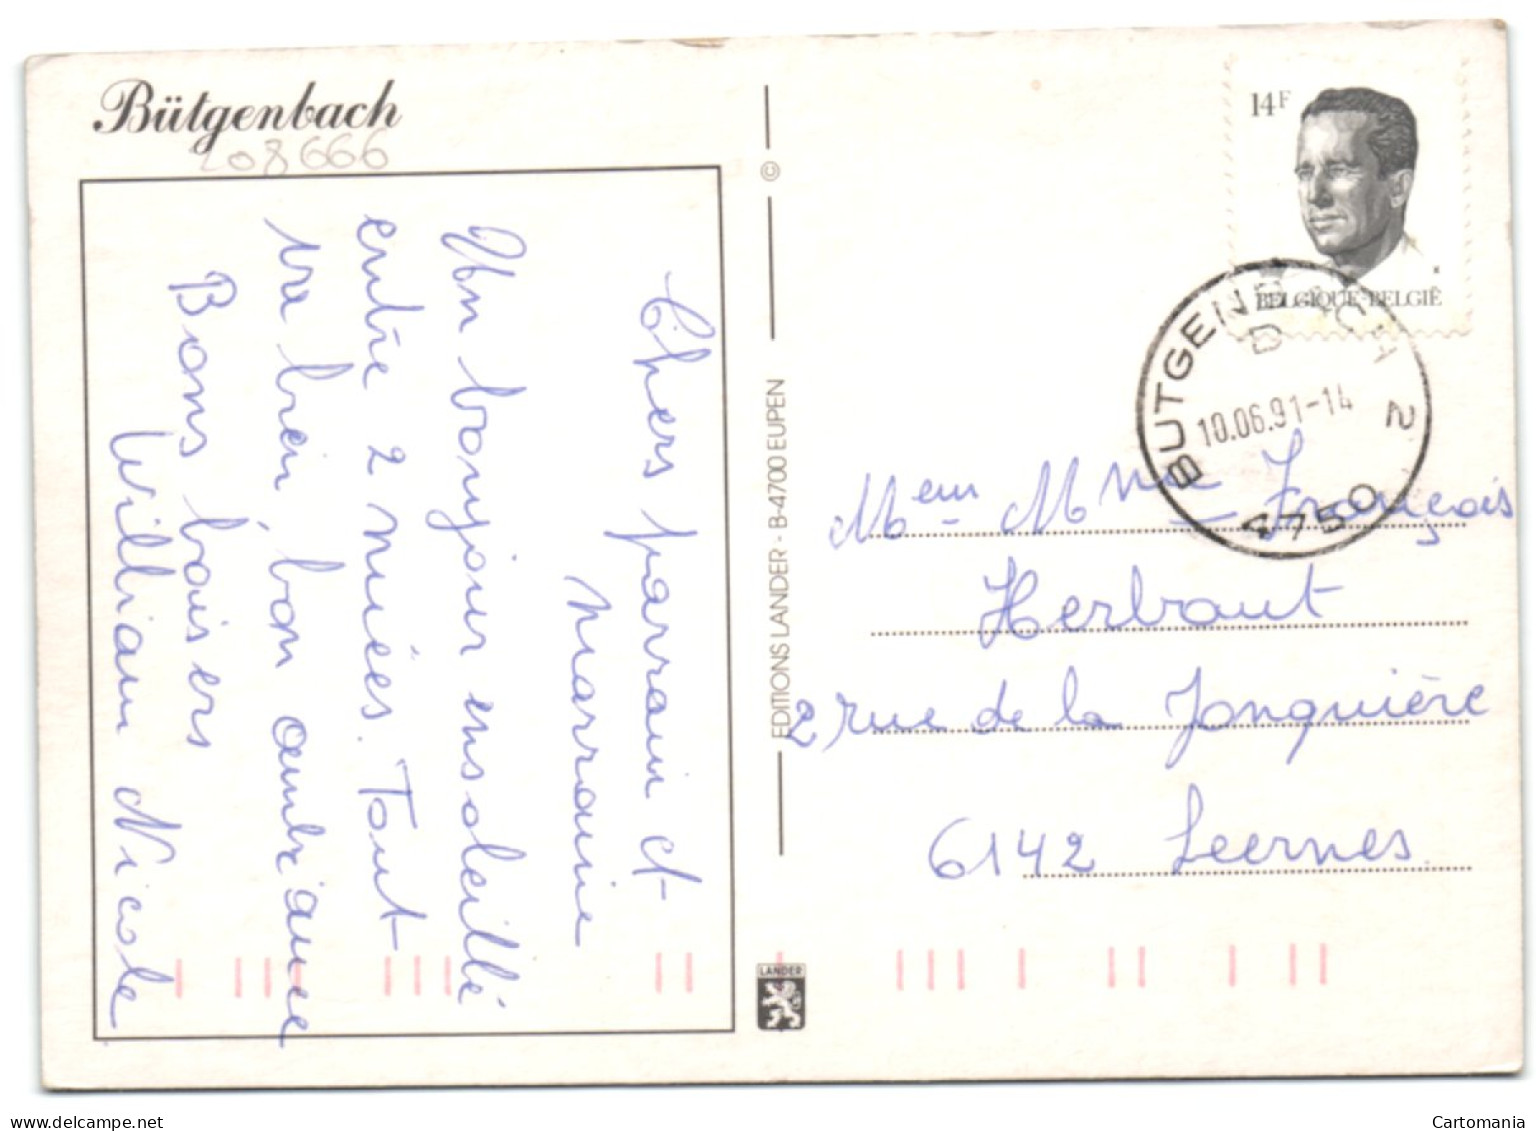 Bütgenbach
208666
Chers parrain et
marraine
Un bonjour ensoleillé
entre 2 nuées. Tout
va bien, bon ambiance
Bons baisers
William Nicole
©
EDITIONS LANDER - B-4700 EUPEN
LANDER
14F
BELGIQUE-BELGIË
BUTGENBACH 2
B
10.06.91-14
4750
M et Mme François
Herbaut
2 rue de la Jonquière
6142 Leernes
www.delcampe.net
Cartomania